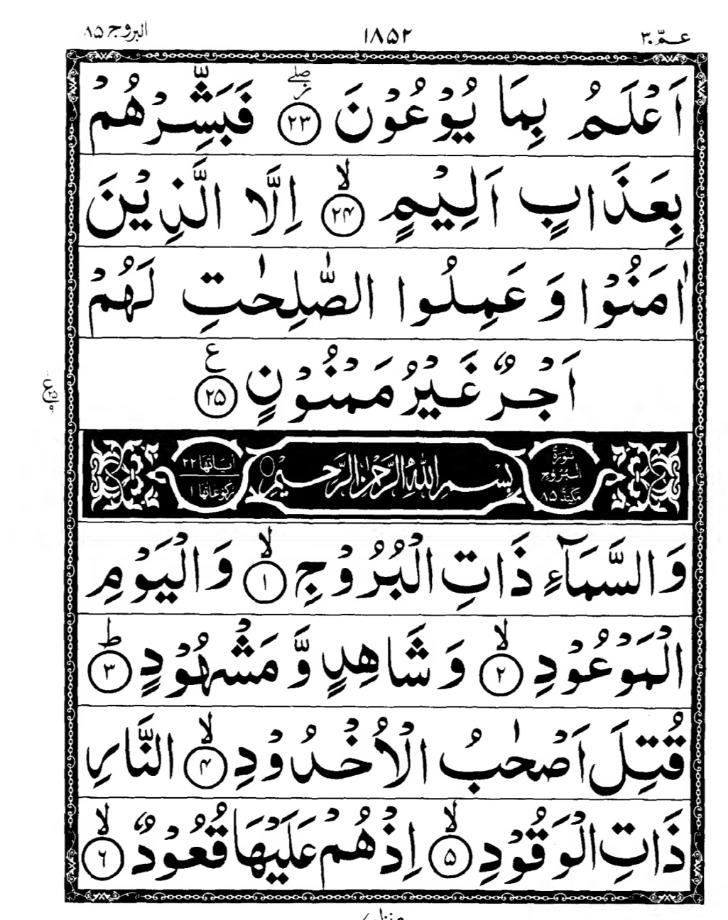 البروج ٨٥ ١٨٥٢ عمّ ٣٠
اَعْلَمُ بِمَا يُوْعُوْنَ ﴿۲۳﴾ۖ ز فَبَشِّرْهُمْ
بِعَذَابٍ اَلِيْمٍ ﴿۲۴﴾ۙ اِلَّا الَّذِيْنَ
اٰمَنُوْا وَ عَمِلُوا الصّٰلِحٰتِ لَهُمْ
اَجْرٌ غَيْرُ مَمْنُوْنٍ ﴿۲۵﴾ ع
سُوْرَةُ الْبُرُوْجِ مَكِّيَّةٌ ٨٥ بِسْمِ اللّٰهِ الرَّحْمٰنِ الرَّحِيْمِ اٰيَاتُهَا ۲۲ رُكُوْعَاتُهَا ۱
وَالسَّمَآءِ ذَاتِ الْبُرُوْجِ ﴿۱﴾ۙ وَالْيَوْمِ
الْمَوْعُوْدِ ﴿۲﴾ۙ وَ شَاهِدٍ وَّ مَشْهُوْدٍ ﴿۳﴾ؕ
قُتِلَ اَصْحٰبُ الْاُخْدُوْدِ ﴿۴﴾ۙ النَّارِ
ذَاتِ الْوَقُوْدِ ﴿۵﴾ۙ اِذْ هُمْ عَلَيْهَا قُعُوْدٌ ﴿۶﴾ۙ
منزل ٧